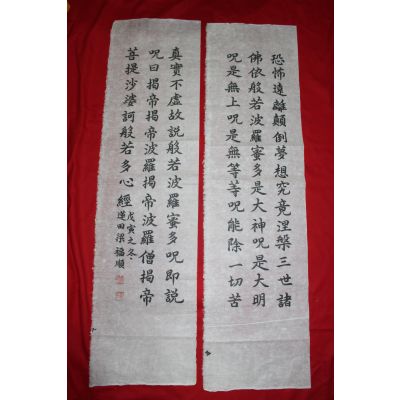 恐怖遠離顛倒夢想究竟涅槃三世諸
佛依般若波羅蜜多是大神呪是大明
呪是無上呪是無等等呪能除一切苦
真實不虛故說般若波羅蜜多呪即說
呪曰揭帝揭帝波羅揭帝波羅僧揭帝
菩提沙婆訶般若多心經
戊寅之冬
蓮田梁福順